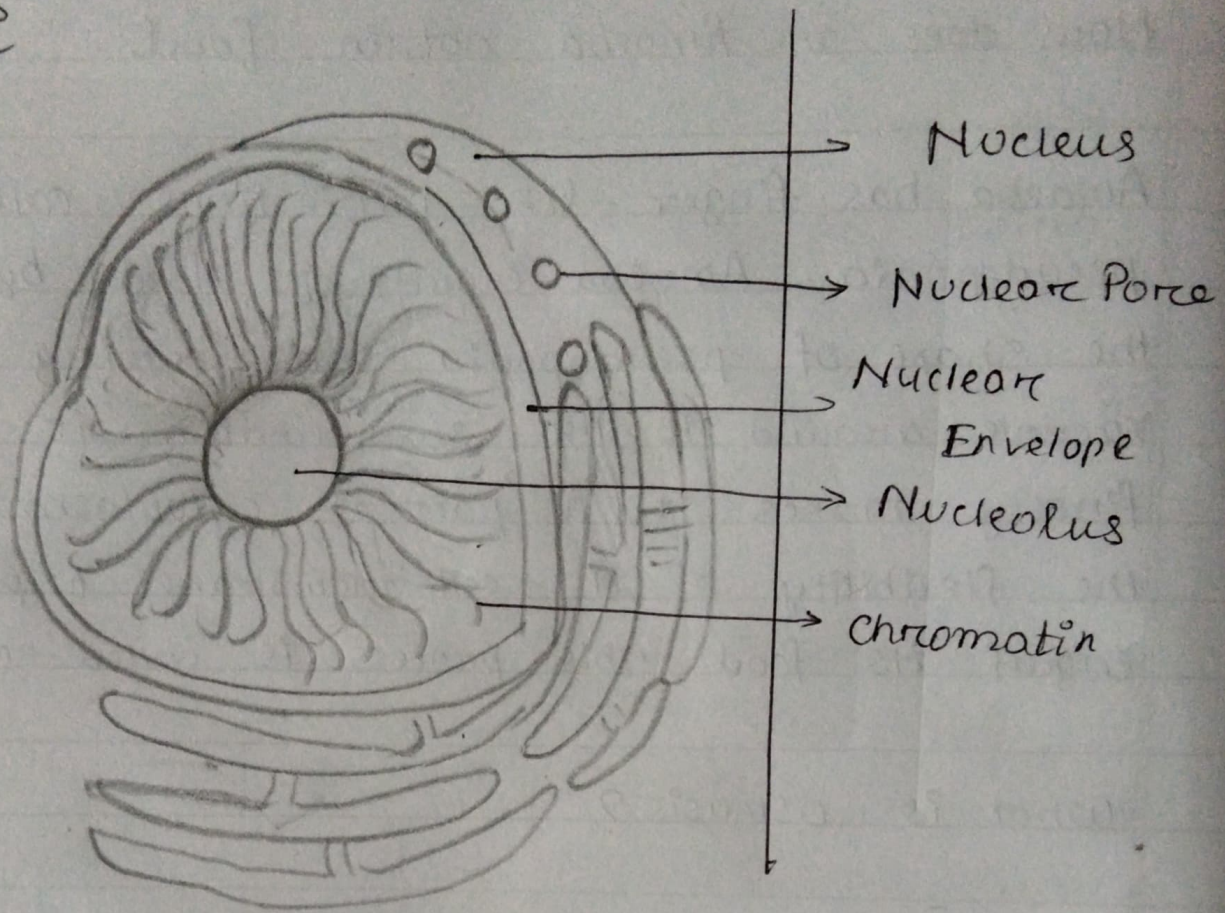 Nucleus
Nuclear Pore
Nuclear
Envelope
Nucleolus
chromatin